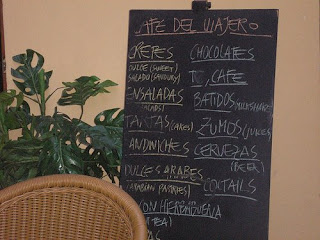 CAFE DEL VIAJERO
CREPES
DULCE (SWEET)
SALADO (SAVOURY)
ENSALADAS
(SALADS)
TARTAS (CAKES)
SANDWICHES
DULCES ARABES
(ARABIAN PASTRIES)
CON HIERBABUENA
(TEA)
CHOCOLATES
TE, CAFE
BATIDOS (MILKSHAKES)
ZUMOS (JUICES)
CERVEZAS
(BEER)
COCTAILS